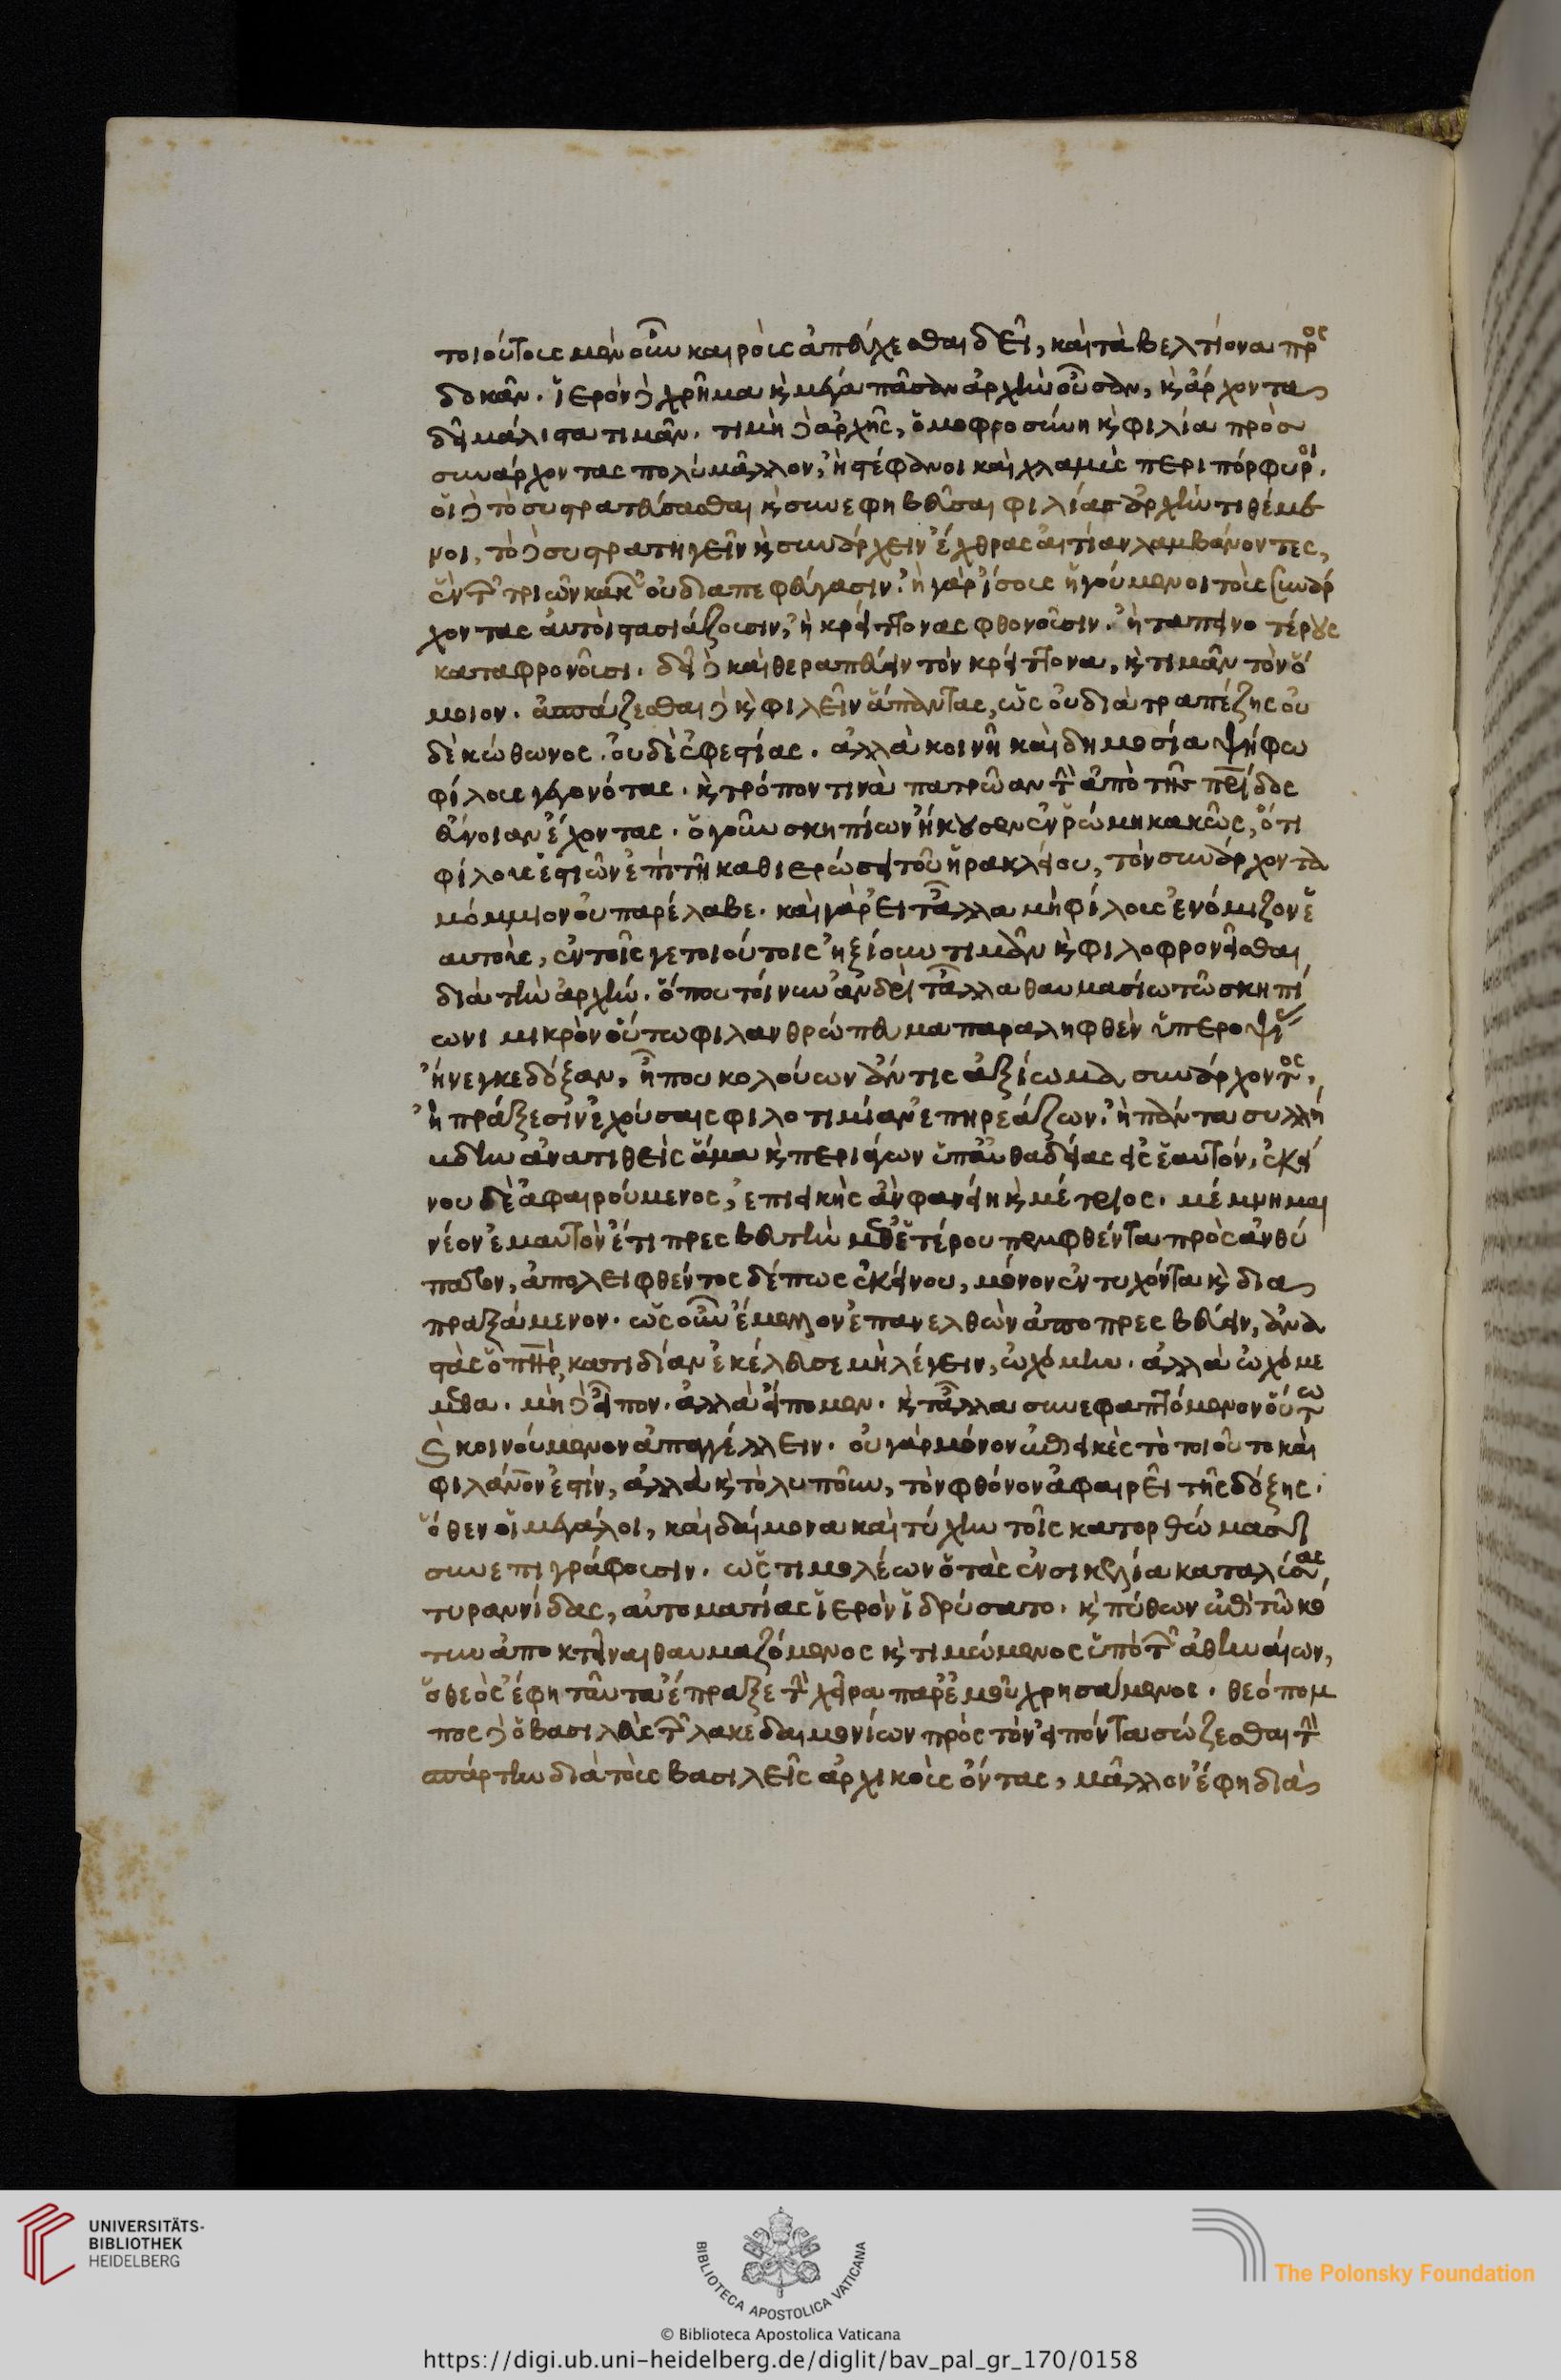 τοιούτοις μὲν οὖν καιροῖς ἀπεύχεσθαι δεῖ, καὶ τὰ βελτίονα προσ
δοκᾶν. ἱερὸν δὲ χρῆμα καὶ μέγα πᾶσαν ἀρχὴν οὖσαν, καὶ ἄρχοντας
δεῖ μάλιστα τιμᾶν. τιμὴ δὲ ἀρχῆς, ὁμοφροσύνη καὶ φιλία πρὸς
συνάρχοντας πολὺ μᾶλλον, ἢ στέφανοι καὶ χλαμὺς περιπόρφυρος.
οἱ δὲ τὸ συστρατεύσασθαι καὶ συνεφηβεῦσαι φιλίας ἀρχὴν τιθέμε
νοι, τὸ δὲ συστρατηγεῖν καὶ συνάρχειν ἔχθρας αἰτίαν λαμβάνοντες,
ἓν τῶν τριῶν κακῶν οὐ διαπεφεύγασιν. ἢ γὰρ ἴσους ἡγούμενοι τοὺς συνάρ
χοντας αὐτοὶ στασιάζουσιν, ἢ κρείττονας φθονοῦσιν. ἢ ταπεινοτέρους
καταφρονοῦσι. δεῖ δὲ καὶ θεραπεύειν τὸν κρείττονα, καὶ τιμᾶν τὸν ὅ
μοιον. ἀσπάζεσθαι δὲ καὶ φιλεῖν ἅπαντας, ὡς οὐ διὰ τραπέζης οὐ
δὲ κώθωνος. οὐδὲ ἐφεστίας. ἀλλὰ κοινῇ καὶ δημοσίᾳ ψήφῳ
φίλους γεγονότας. καὶ τρόπον τινὰ πατρῴαν τὴν ἀπὸ τῆς πατρίδος
εὔνοιαν ἔχοντας. ὁ γοῦν σκηπίων ἤκουσεν ἐν ῥώμῃ κακῶς, ὅτι
φίλους ἑστιῶν ἐπὶ τῇ καθιερώσει τοῦ ἡρακλείου, τὸν συνάρχοντα
μόμμιον οὐ παρέλαβε. καὶ γὰρ εἰ τἆλλα μὴ φίλους ἐνόμιζον ἑ
αυτοὺς, ἐν τοῖς γε τοιούτοις ἠξίουν τιμᾶν καὶ φιλοφρονεῖσθαι
διὰ τὴν ἀρχήν. ὅπου τοίνυν ἀνδρὶ τἆλλα θαυμασίῳ τῷ σκηπί
ωνι μικρὸν οὕτω φιλανθρώπευμα παραληφθὲν ὑπεροψίας
ἤνεγκε δόξαν, ἦπου κολούων ἄν τις ἀξίωμα συνάρχοντος,
ἢ πράξεσιν ἐχούσαις φιλοτιμίαν ἐπηρεάζων. ἢ πάντα συλλή
βδην ἀνατιθεὶς ἅμα καὶ περιάγων ὑπ᾽ αὐθαδείας εἰς ἑαυτὸν, ἐκεί
νου δὲ ἀφαιρούμενος, ἐπιεικὴς ἂν φανείη καὶ μέτριος. μέμνημαι
νέον ἐμαυτὸν ἔτι πρεσβευτὴν μεθ᾽ ἑτέρου πεμφθέντα πρὸς ἀνθύ
πατον, ἀπολειφθέντος δέ πως ἐκείνου, μόνον ἐντυχόντα καὶ δια
πραξάμενον. ὡς οὖν ἔμελλον ἐπανελθὼν ἀποπρεσβεύειν, ἀνα
στὰς ὁ πατὴρ, κατ᾽ ἰδίαν ἐκέλευσε μὴ λέγειν, ᾠχόμην. ἀλλὰ ᾠχόμε
θα. μὴ δὲ εἶπον. ἀλλὰ εἴπομεν. καὶ τἆλλα συνεφαπτόμενον οὕτω
καὶ κοινούμενον ἀπαγγέλλειν. οὐ γὰρ μόνον ἐπιεικὲς τὸ τοιοῦτο καὶ
φιλάνθρωπόν ἐστίν, ἀλλὰ καὶ τὸ λυποῦν, τὸν φθόνον ἀφαιρεῖ τῆς δόξης.
ὅθεν οἱ μεγάλοι, καὶ δαίμονα καὶ τύχην τοῖς κατορθώμασιν
συνεπιγράφουσιν. ὡς τιμολέων ὁ τὰς ἐν σικελίᾳ καταλύσας
τυραννίδας, αὐτοματίας ἱερὸν ἱδρύσατο. καὶ πύθων ἐπὶ τῷ κό
τυν ἀποκτεῖναι θαυμαζόμενος καὶ τιμώμενος ὑπὸ τῶν ἀθηναίων,
ὁ θεὸς ἔφη ταῦτα ἔπραξε τὴν χεῖρα παρ᾽ ἐμοῦ χρησάμενος. θεόπομ
πος δὲ ὁ βασιλεὺς τῶν λακεδαιμονίων πρὸς τὸν εἰπόντα σώζεσθαι τὴν
σπάρτην διὰ τοὺς βασιλεῖς ἀρχικοὺς ὄντας, μᾶλλον ἔφη διὰ
UNIVERSITÄTS-
BIBLIOTHEK
HEIDELBERG
BIBLIOTECA APOSTOLICA VATICANA
The Polonsky Foundation
© Biblioteca Apostolica Vaticana
https://digi.ub.uni-heidelberg.de/diglit/bav_pal_gr_170/0158